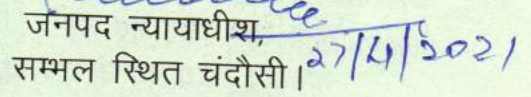 जनपद न्यायाधीश,
सम्भल स्थित चंदौसी। 27/4/2021